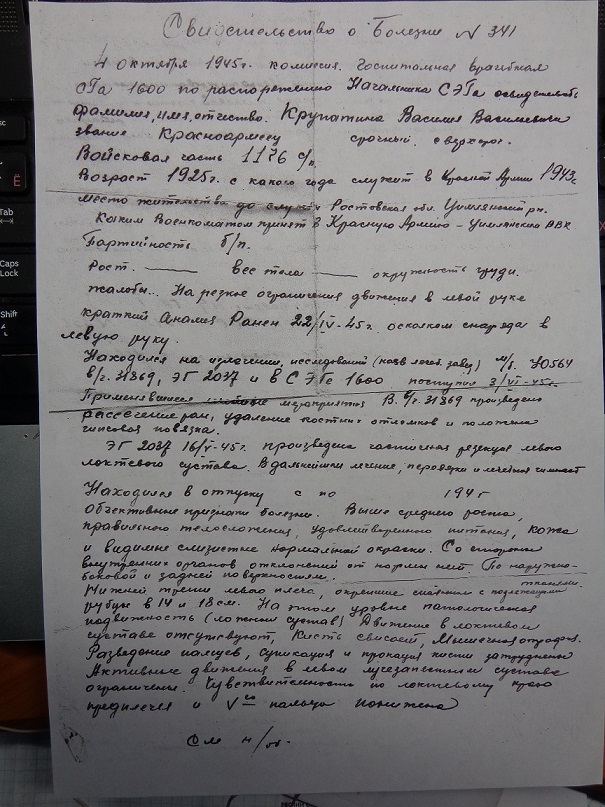 Свидетельство о Болезни № 341
4 октября 1945г. комиссия. Госпитальная врачебная
СГа 1600 по распоряжению Начальника СЭГа освидетель
фамилия, имя, отчество. Крупатина Василия Васильевича
звание Красноармеец срочный, сверхсроч.
Войсковая часть 1176 с/п.
Возраст 1925г. с какого года служит в Красной Армии 1943г.
место жительства до службы Ростовская обл. Цимлянский рн.
Каким Военкоматом принят в Красную Армию – Цимлянским РВК
Партийность б/п.
Рост. —— вес тела —— окружность груди.
жалобы... На резкое ограничения движения в левой руке
краткий Анализ Ранен 22/IV-45г. осколком снаряда в
левую руку.
Находился на излечении, исследовании (назв лечеб. завед) м/б. 30564
в/г. 31369, ЭГ 2037 и в СЭГе 1600 поступил 3/VI-45г.
Применявшиеся мероприятия В. 31369 произведено
рассечение ран, удаление костных отломков и положена
гипсовая повязка.
ЭГ 2037 16/V-45г. произведена частичная резекция левого
локтевого сустава. В дальнейшем лечение, перевязки и лечебная гимнаст
Находился в отпуску с по 194 г
Объективные признаки болезни. Выше среднего роста,
правильного телосложения, удовлетворенного питания, кожа
и видимые слизистые нормальной окраски. Со стороны
внутренних органов отклонений от нормы нет. По наружно-
боковой и задней поверхностям.
Нижней трети левого плеча, окрепшие спаянные с подлежащими тканями.
рубцы в 14 и 18 см. На этом уровне патологическая
подвижность (ложный сустав) Движение в локтевом
суставе отсутствуют, Кисть свисает, Мышечная атрофия.
Разведение пальцев, супинация и пронация кисти затруднены
Активные движения в левом лучезапястном суставе
ограничены. Чувствительность по локтевому краю
предплечья и V го пальца понижена
См н/об.